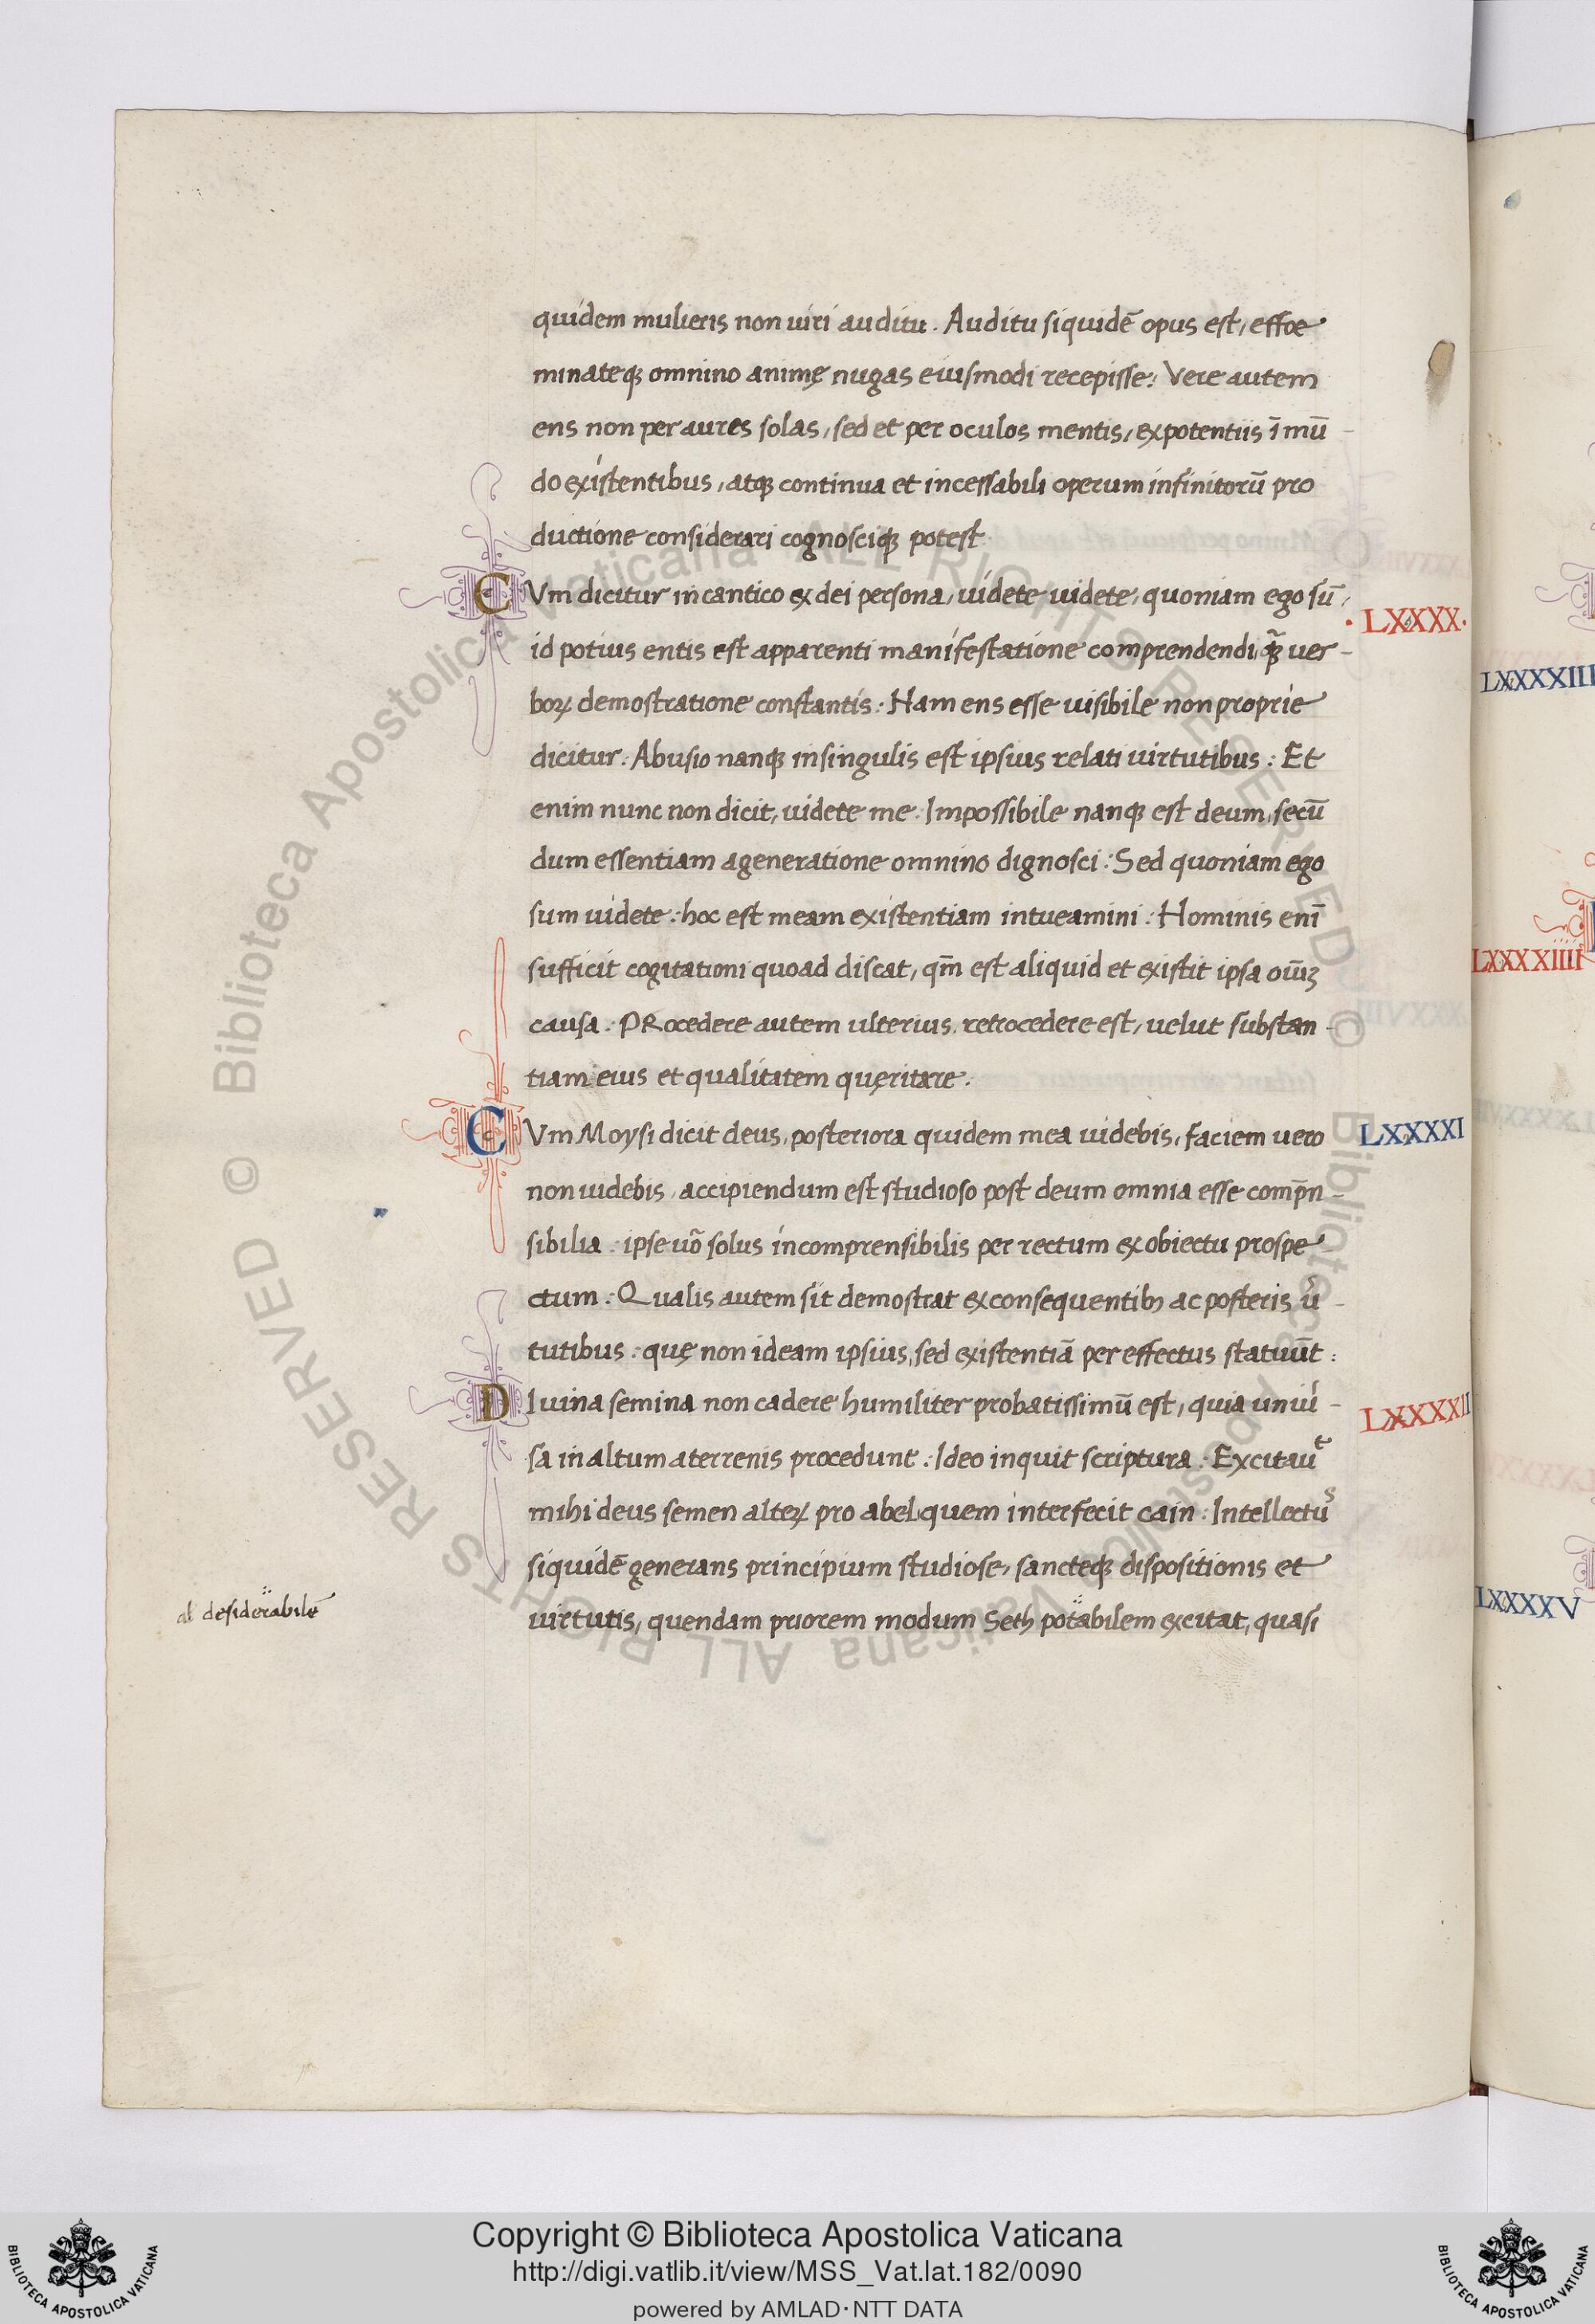 quidem mulieris non uiri auditu. Auditu siquidē opus est, effoe
minateq; omnino animę nugas eiusmodi recepisse: Vere autem
ens non per aures solas, sed et per oculos mentis, ex potentiis ī mū-
do existentibus, atq; continua et incessabili operum infinitorū pro
ductione considerari cognosciq; potest.
CVm dicitur in cantico ex dei persona, uidete uidete, quoniam ego sū,
·LXXXX·
id potius entis est apparenti manifestatione comprendendi, q̃; uer-
boꝝ demostratione constantis: Nam ens esse uisibile non proprie
dicitur: Abusio nanq; in singulis est ipsius relati uirtutibus: Et
enim nunc non dicit, uidete me. Impossibile nanq; est deum, secū
dum essentiam a generatione omnino dignosci: Sed quoniam ego
sum uidete: hoc est meam existentiam intueamini: Hominis enī
sufficit cogitationi quoad discat, qm̄ est aliquid et existit ipsa oīuꝫ
causa: PRocedere autem ulterius, retrocedere est, uelut substan-
tiam eius et qualitatem quęritare.
CVm Moysi dicit deus, posteriora quidem mea uidebis, faciem uero
LXXXXI
non uidebis, accipiendum est studioso post deum omnia esse comp̄n-
sibilia: ipse uō solus incomprensibilis per rectum ex obiectu prospe
ctum: Qualis autem sit demostrat ex consequentibꝫ ac posteris ur-
tutibus: quę non ideam ipsius, sed existentiā per effectus statuūt:
DIuina semina non cadere humiliter probatissimū est, quia uniu-
LXXXXII
sa in altum a terrenis procedunt: Ideo inquit scriptura: Excitauᵗ
mihi deus semen alteꝝ pro abel quem interfecit cain: Intellectuˢ
siquidē generans principium studiose, sancteq; dispositionis et
uirtutis, quendam priorem modum Seth potabilem excitat, quasi
al desiderabilē
LXXXXIII
LXXXXIIII
LXXXXV
Copyright © Biblioteca Apostolica Vaticana
http://digi.vatlib.it/view/MSS_Vat.lat.182/0090
powered by AMLAD·NTT DATA
BIBLIOTECA APOSTOLICA VATICANA
BIBLIOTECA APOSTOLICA VATICANA
© Biblioteca Apostolica Vaticana ALL RIGHTS RESERVED © Biblioteca Apostolica Vaticana ALL RIGHTS RESERVED